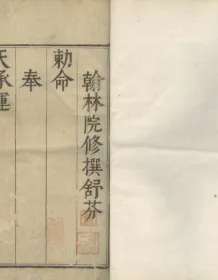 翰林院修撰舒芬
勅命
奉
天承運